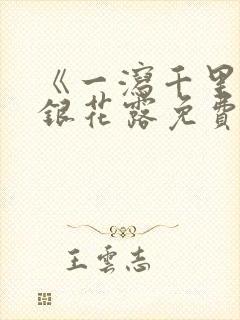 《一瀉千里
銀花露免費
王雲志